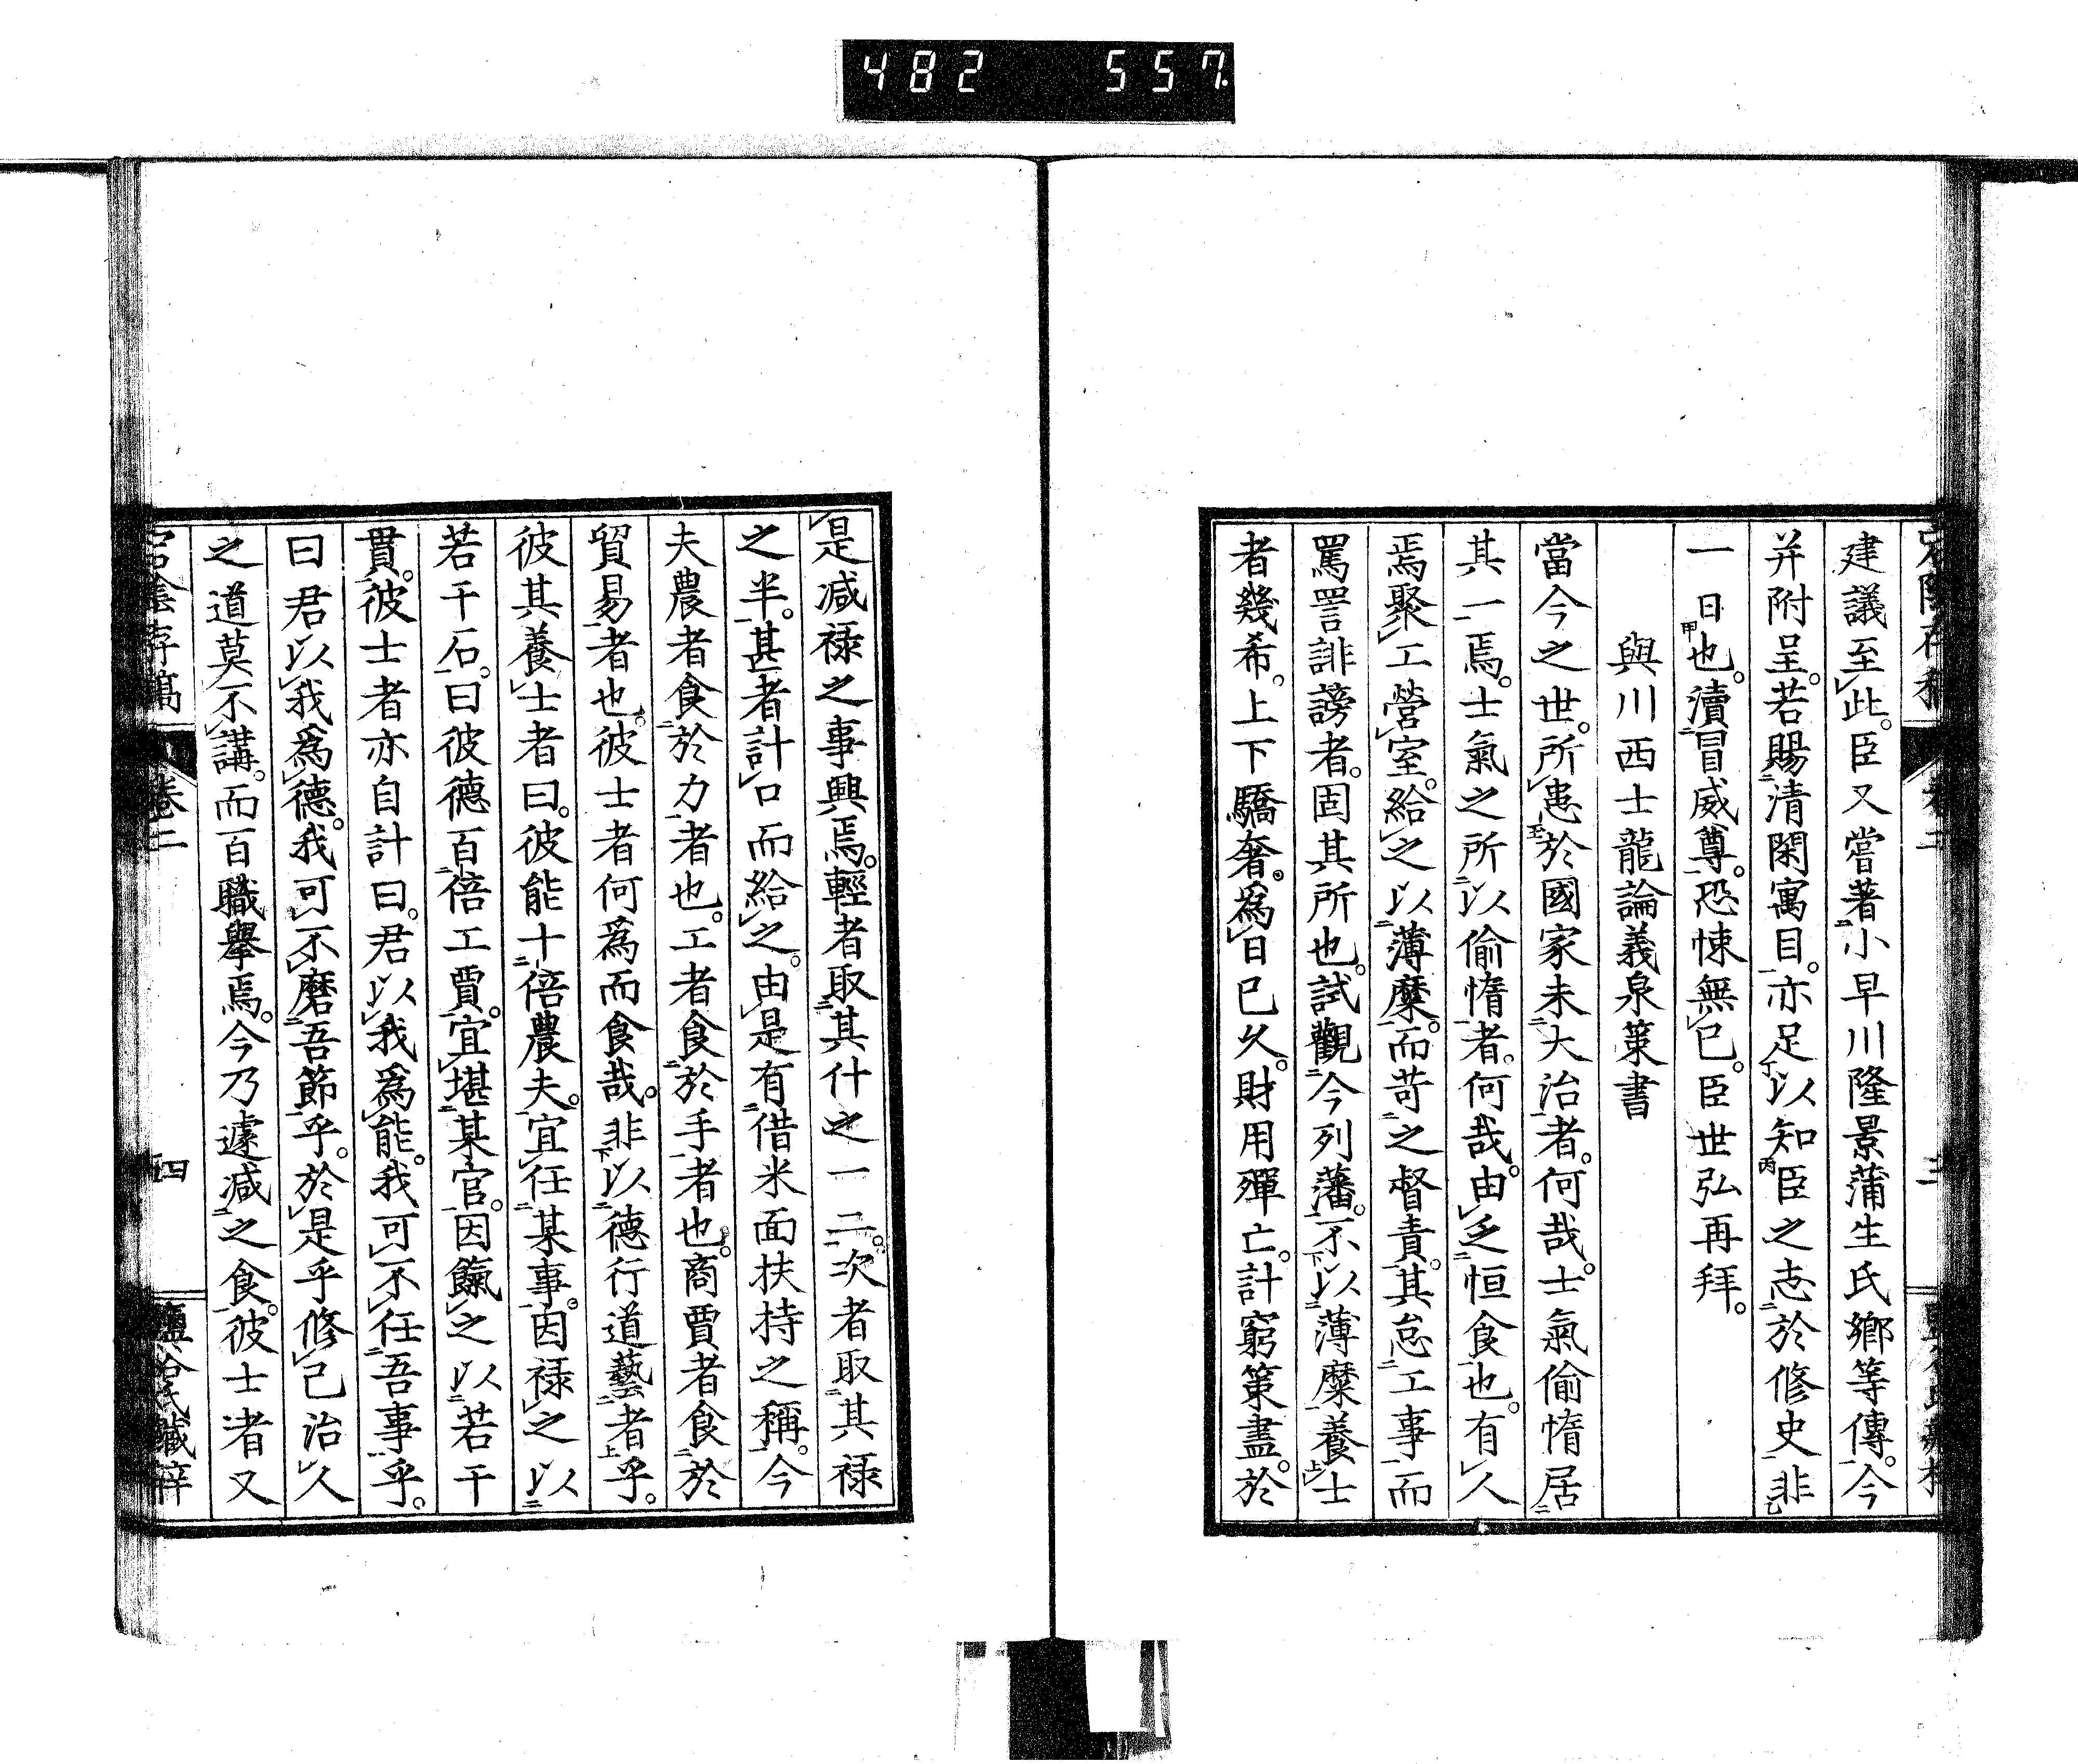 482 557
建議至此。臣又嘗著小早川隆景蒲生氏鄉等傳。今
并附呈。若賜清閑寓目。亦足以知臣之志於修史非
一日也。瀆冒威尊。恐悚無已。臣世弘再拜。
與川西士龍論義泉策書
當今之世。所患於國家未大治者。何哉。士氣偷惰居
其一焉。士氣之所以偷惰者。何哉。由乏恒食也。有人
焉聚工營室。給之以薄糜。而苛之督責。其怠工事而
罵詈誹謗者。固其所也。試觀今列藩。不以薄糜養士
者幾希。上下驕奢。為日已久。財用殫亡。計窮策盡。於
是減祿之事興焉。輕者取其什之一二。次者取其祿
之半。甚者計口而給之。由是有借米面扶持之稱。今
夫農者食於力者也。工者食於手者也。商賈者食於
貿易者也。彼士者何為而食哉。非以德行道藝者乎。
彼其養士者曰。彼能十倍農夫。宜任某事。因祿之以
若干石。曰彼德百倍工賈。宜堪某官。因餼之以若干
貫。彼士者亦自計曰。君以我為能。我可不任吾事乎。
曰君以我為德。我可不磨吾節乎。於是乎修己治人
之道莫不講。而百職舉焉。今乃遽減之食。彼士者又
宕陰存稿 卷二 四 鹽谷氏藏梓